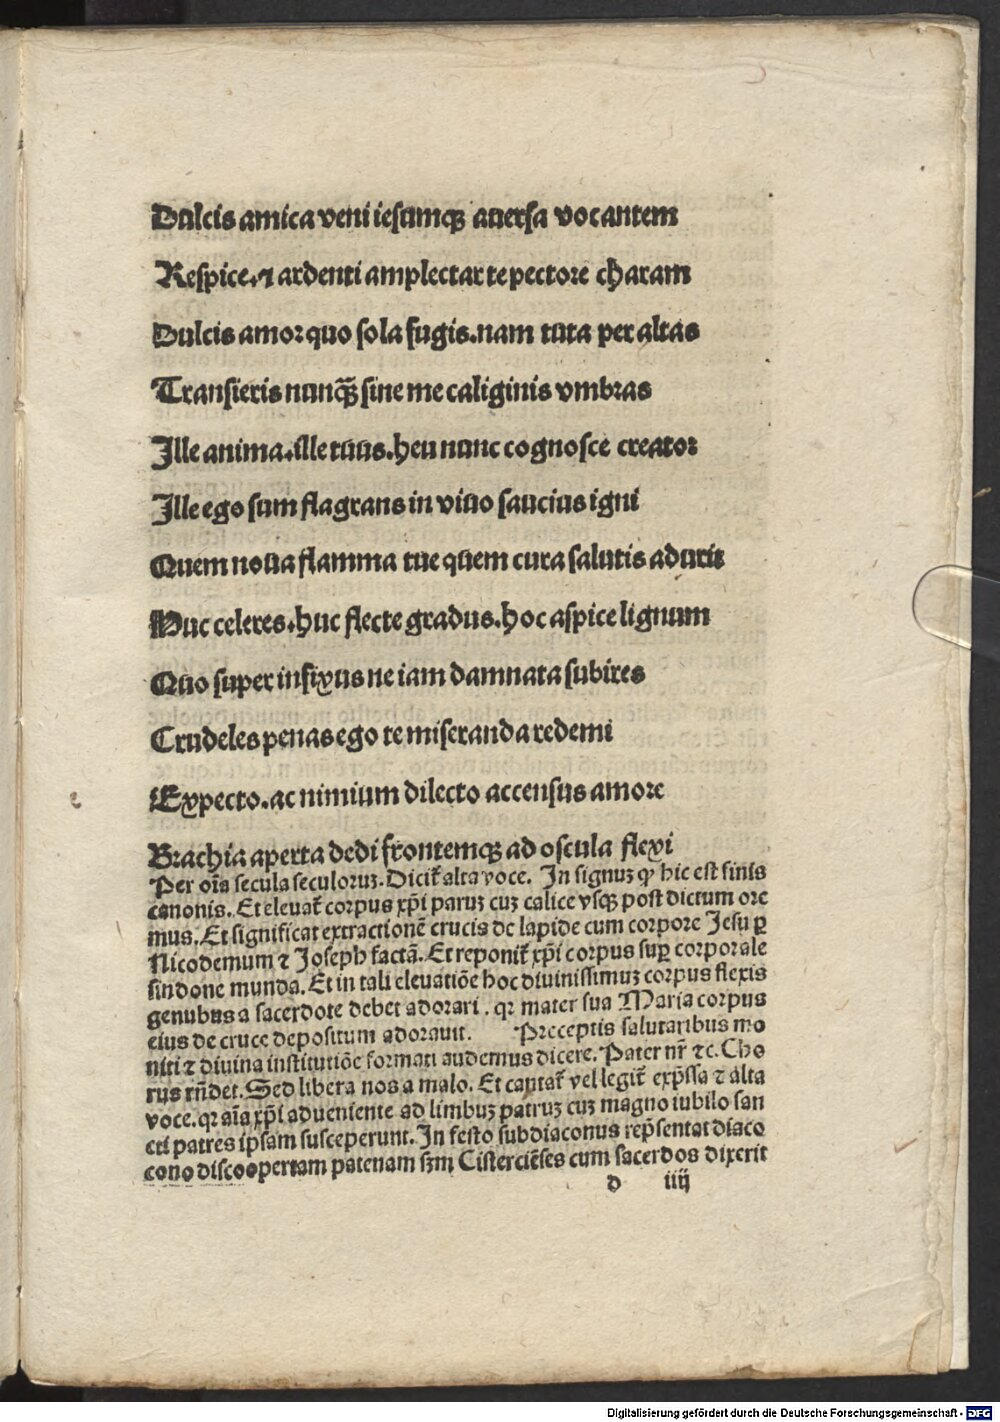 Dulcis amica veni iesumqꝫ auersa vocantem
Respice.⁊ ardenti amplectar te pectore charam
Dulcis amor quo sola fugis.nam tuta per altas
Transieris nunqꝫ̄ sine me caliginis vmbras
Ille anima.ille tuus.heu nunc cognosce creator
Ille ego sum flagrans in viuo saucius igni
Quem noua flamma tue quem cura salutis adurit
Huc celeres.huc flecte gradus.hoc aspice lignum
Quo super infixus ne iam damnata subires
Crudeles penas ego te miseranda redemi
Expecto.ac nimium dilecto accensus amore
Brachia aperta dedi frontemqꝫ ad oscula flexi
Per oı̄a secula seculoruꝫ. Dicit᷑ alta voce. In signuꝫ ꝙ hic est finis
canonis. Et eleuat᷑ corpus xp̄i paruꝫ cuꝫ calice vsqꝫ post dictum ore
mus. Et significat extractionē crucis de lapide cum corpore Jesu ꝑ
Nicodemum ⁊ Joseph factā. Et reponit᷑ xp̄i corpus suꝑ corporale
sindone munda. Et in tali eleuatiōe hoc diuinissimuꝫ corpus flexis
genubus a sacerdote debet adorari . qꝛ mater sua Maria corpus
eius de cruce depositum adorauit. Preceptis salutaribus mo
niti ⁊ diuina institutiōe formati audemus dicere. Pater nr̄ ⁊c. Cho
rus rn̄det. Sed libera nos a malo. Et cantat᷑ vel legit᷑ exp̄ssa ⁊ alta
voce. qꝛ aı̄a xp̄i adueniente ad limbuꝫ patruꝫ cuꝫ magno iubilo san
cti patres ipsam susceperunt. In festo subdiaconus rep̄sentat diaco
cono discoopertam patenam sꝫm Cisterciēses cum sacerdos dixerit
d iiij
Digitalisierung gefördert durch die Deutsche Forschungsgemeinschaft - DFG